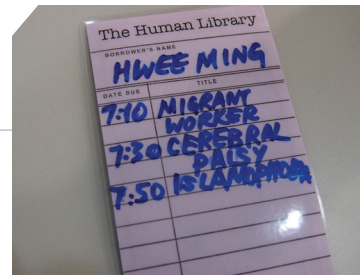 The Human Library
BORROWER'S NAME
HWEE MING
DATE DUE TITLE
7:10 MIGRANT
WORKER
7:30 CEREBRAL
PALSY
7:50 ISLAMOPHOBIA